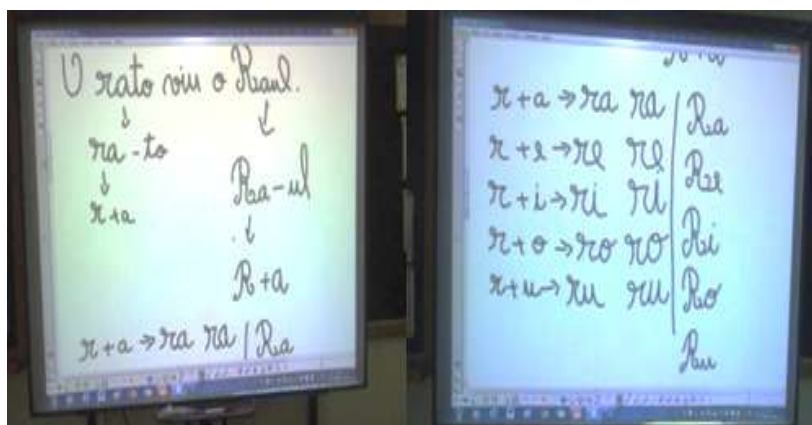 O rato viu o Raul.
ra - to
r + a
Ra - ul
R + a
r + a → ra ra | Ra
r + a → ra ra | Ra
r + e → re re | Re
r + i → ri ri | Ri
r + o → ro ro | Ro
r + u → ru ru | Ru